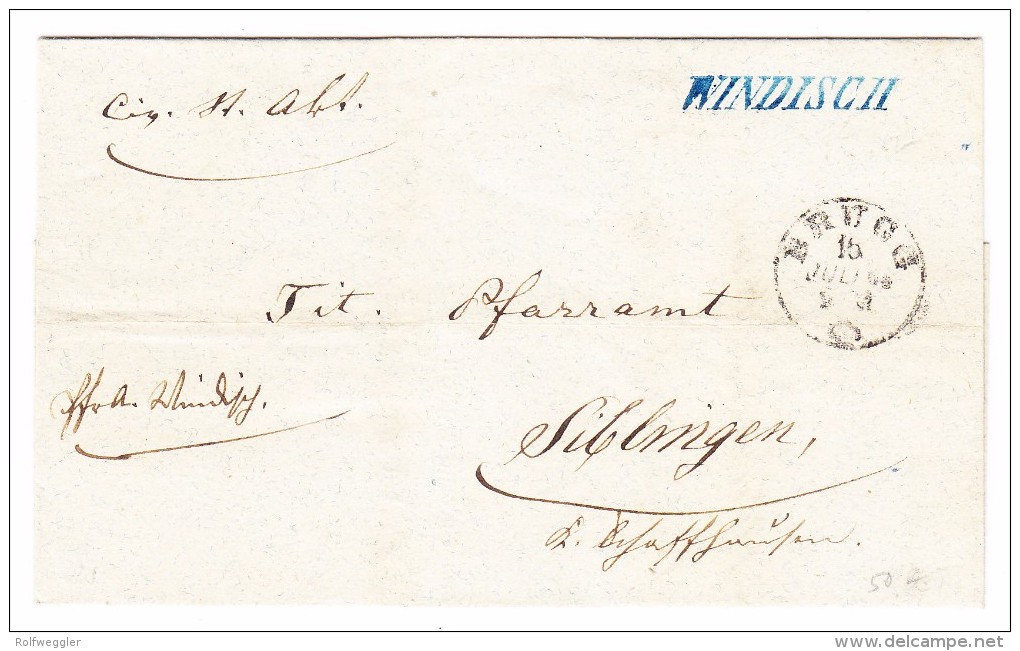 Civ. St. Akt.
WINDISCH
BRUGG
15
JULI 64
Tit. Pfarramt
PfrA. Windisch.
Siblingen,
K. Schaffhausen.
50
Rolfweggler
www.delcampe.net